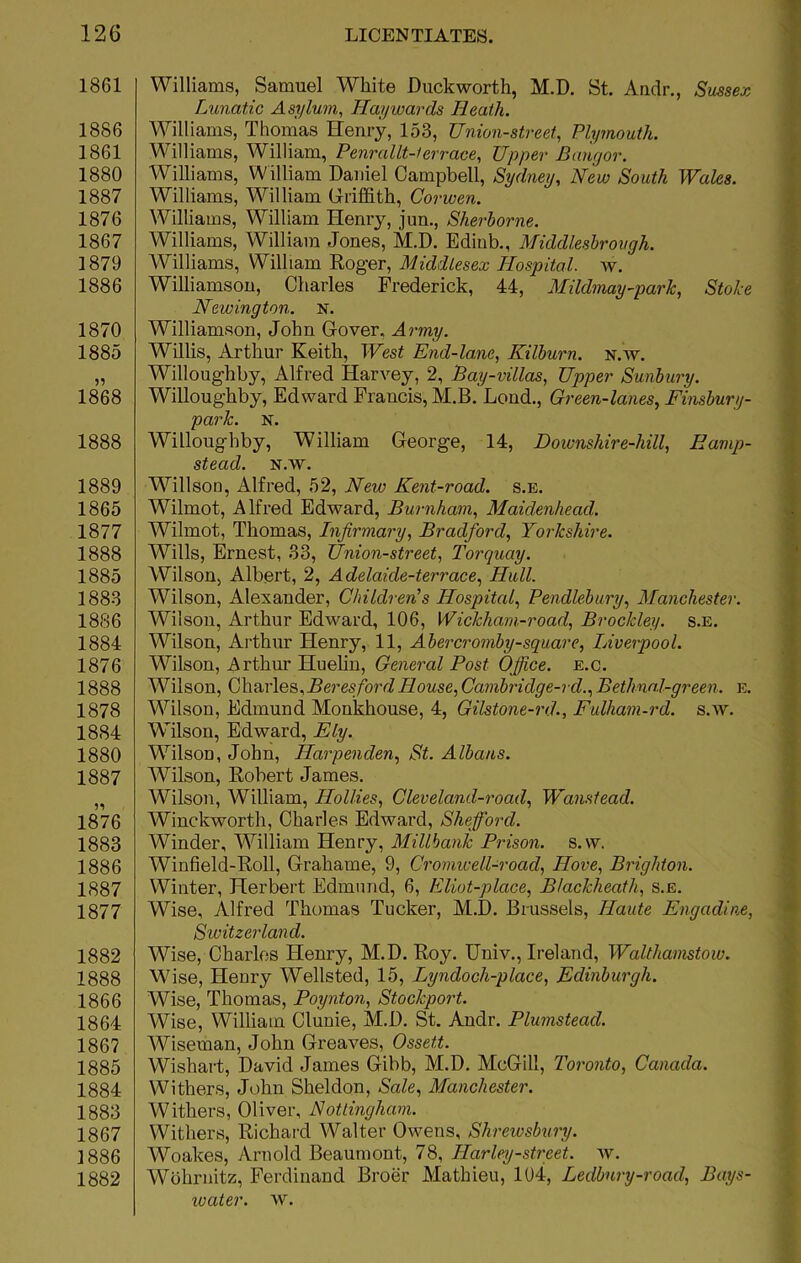 126 LICENTIATES.
1861 Williams, Samuel White Duckworth, M.D. St. Andr., Sussex
Lunatic Asylum, Haywards Heath.
1886 Williams, Thomas Henry, 153, Union-street, Plymouth.
1861 Williams, William, Penrallt-terrace, Upper Bangor.
1880 Williams, William Daniel Campbell, Sydney, New South Wales.
1887 Williams, William Griffith, Corwen.
1876 Williams, William Henry, jun., Sherborne.
1867 Williams, William Jones, M.D. Edinb., Middlesbrough.
1879 Williams, William Roger, Middlesex Hospital. W.
1886 Williamson, Charles Frederick, 44, Mildmay-park, Stoke
Newington. N.
1870 Williamson, John Gover, Army.
1885 Willis, Arthur Keith, West End-lane, Kilburn. N.W.
„ Willoughby, Alfred Harvey, 2, Bay-villas, Upper Sunbury.
1868 Willoughby, Edward Francis, M.B. Lond., Green-lanes, Finsbury-
park. N.
1888 Willoughby, William George, 14, Downshire-hill, Hamp-
stead. N.W.
1889 Willson, Alfred, 52, New Kent-road. S.E.
1865 Wilmot, Alfred Edward, Burnham, Maidenhead.
1877 Wilmot, Thomas, Infirmary, Bradford, Yorkshire.
1888 Wills, Ernest, 33, Union-street, Torquay.
1885 Wilson, Albert, 2, Adelaide-terrace, Hull.
1883 Wilson, Alexander, Children's Hospital, Pendlebury, Manchester.
1886 Wilson, Arthur Edward, 106, Wickham-road, Brockley. S.E.
1884 Wilson, Arthur Henry, 11, Abercromby-square, Liverpool.
1876 Wilson, Arthur Huelin, General Post Office. E.C.
1888 Wilson, Charles, Beresford House, Cambridge-rd., Bethnal-green. E.
1878 Wilson, Edmund Monkhouse, 4, Gilstone-rd., Fulham-rd. S.W.
1884 Wilson, Edward, Ely.
1880 Wilson, John, Harpenden, St. Albans.
1887 Wilson, Robert James.
„ Wilson, William, Hollies, Cleveland-road, Wanstead.
1876 Winckworth, Charles Edward, Shefford.
1883 Winder, William Henry, Millbank Prison. S.W.
1886 Winfield-Roll, Grahame, 9, Cromwell-road, Hove, Brighton.
1887 Winter, Herbert Edmund, 6, Eliot-place, Blackheath, S.E.
1877 Wise, Alfred Thomas Tucker, M.D. Brussels, Haute Engadine,
Switzerland.
1882 Wise, Charles Henry, M.D. Roy. Univ., Ireland, Walthamstow.
1888 Wise, Henry Wellsted, 15, Lyndoch-place, Edinburgh.
1866 Wise, Thomas, Poynton, Stockport.
1864 Wise, William Clunie, M.D. St. Andr. Plumstead.
1867 Wiseman, John Greaves, Ossett.
1885 Wishart, David James Gibb, M.D. McGill, Toronto, Canada.
1884 Withers, John Sheldon, Sale, Manchester.
1883 Withers, Oliver, Nottingham.
1867 Withers, Richard Walter Owens, Shrewsbury.
1886 Woakes, Arnold Beaumont, 78, Harley-street. W.
1882 Wöhrnitz, Ferdinand Broër Mathieu, 104, Ledbury-road, Bays-
water. W.